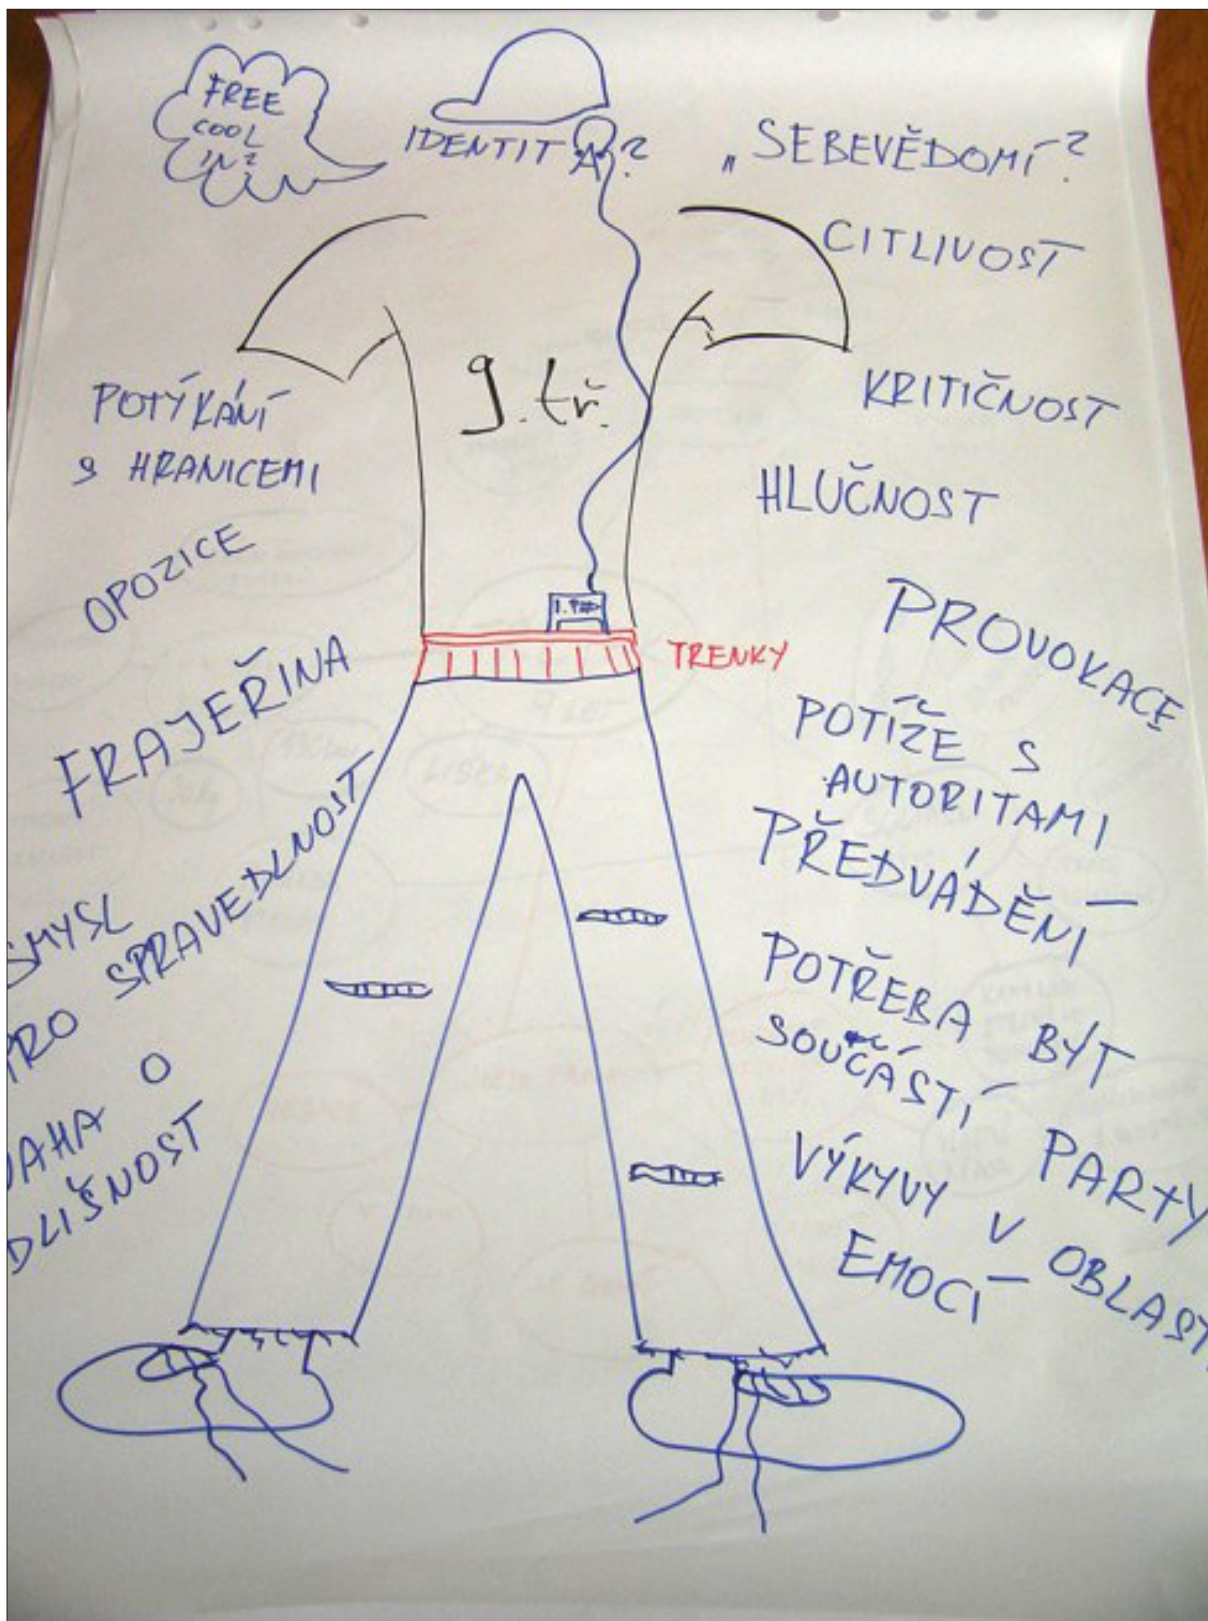 FREE
COOL
IN?
IDENTITA?
„SEBEVĚDOMÍ?
CITLIVOST
9. tř.
POTÝKÁNÍ
S HRANICEMI
KRITIČNOST
HLUČNOST
OPOZICE
PROVOKACE
FRAJEŘINA
TRENKY
POTÍŽE S
AUTORITAMI
PŘEDVÁDĚNÍ
SMYSL
PRO SPRAVEDLNOST
POTŘEBA BÝT
SOUČÁSTÍ PARTY
AHA O
DLIŠNOST
VÝKYVY V OBLAST
EMOCÍ